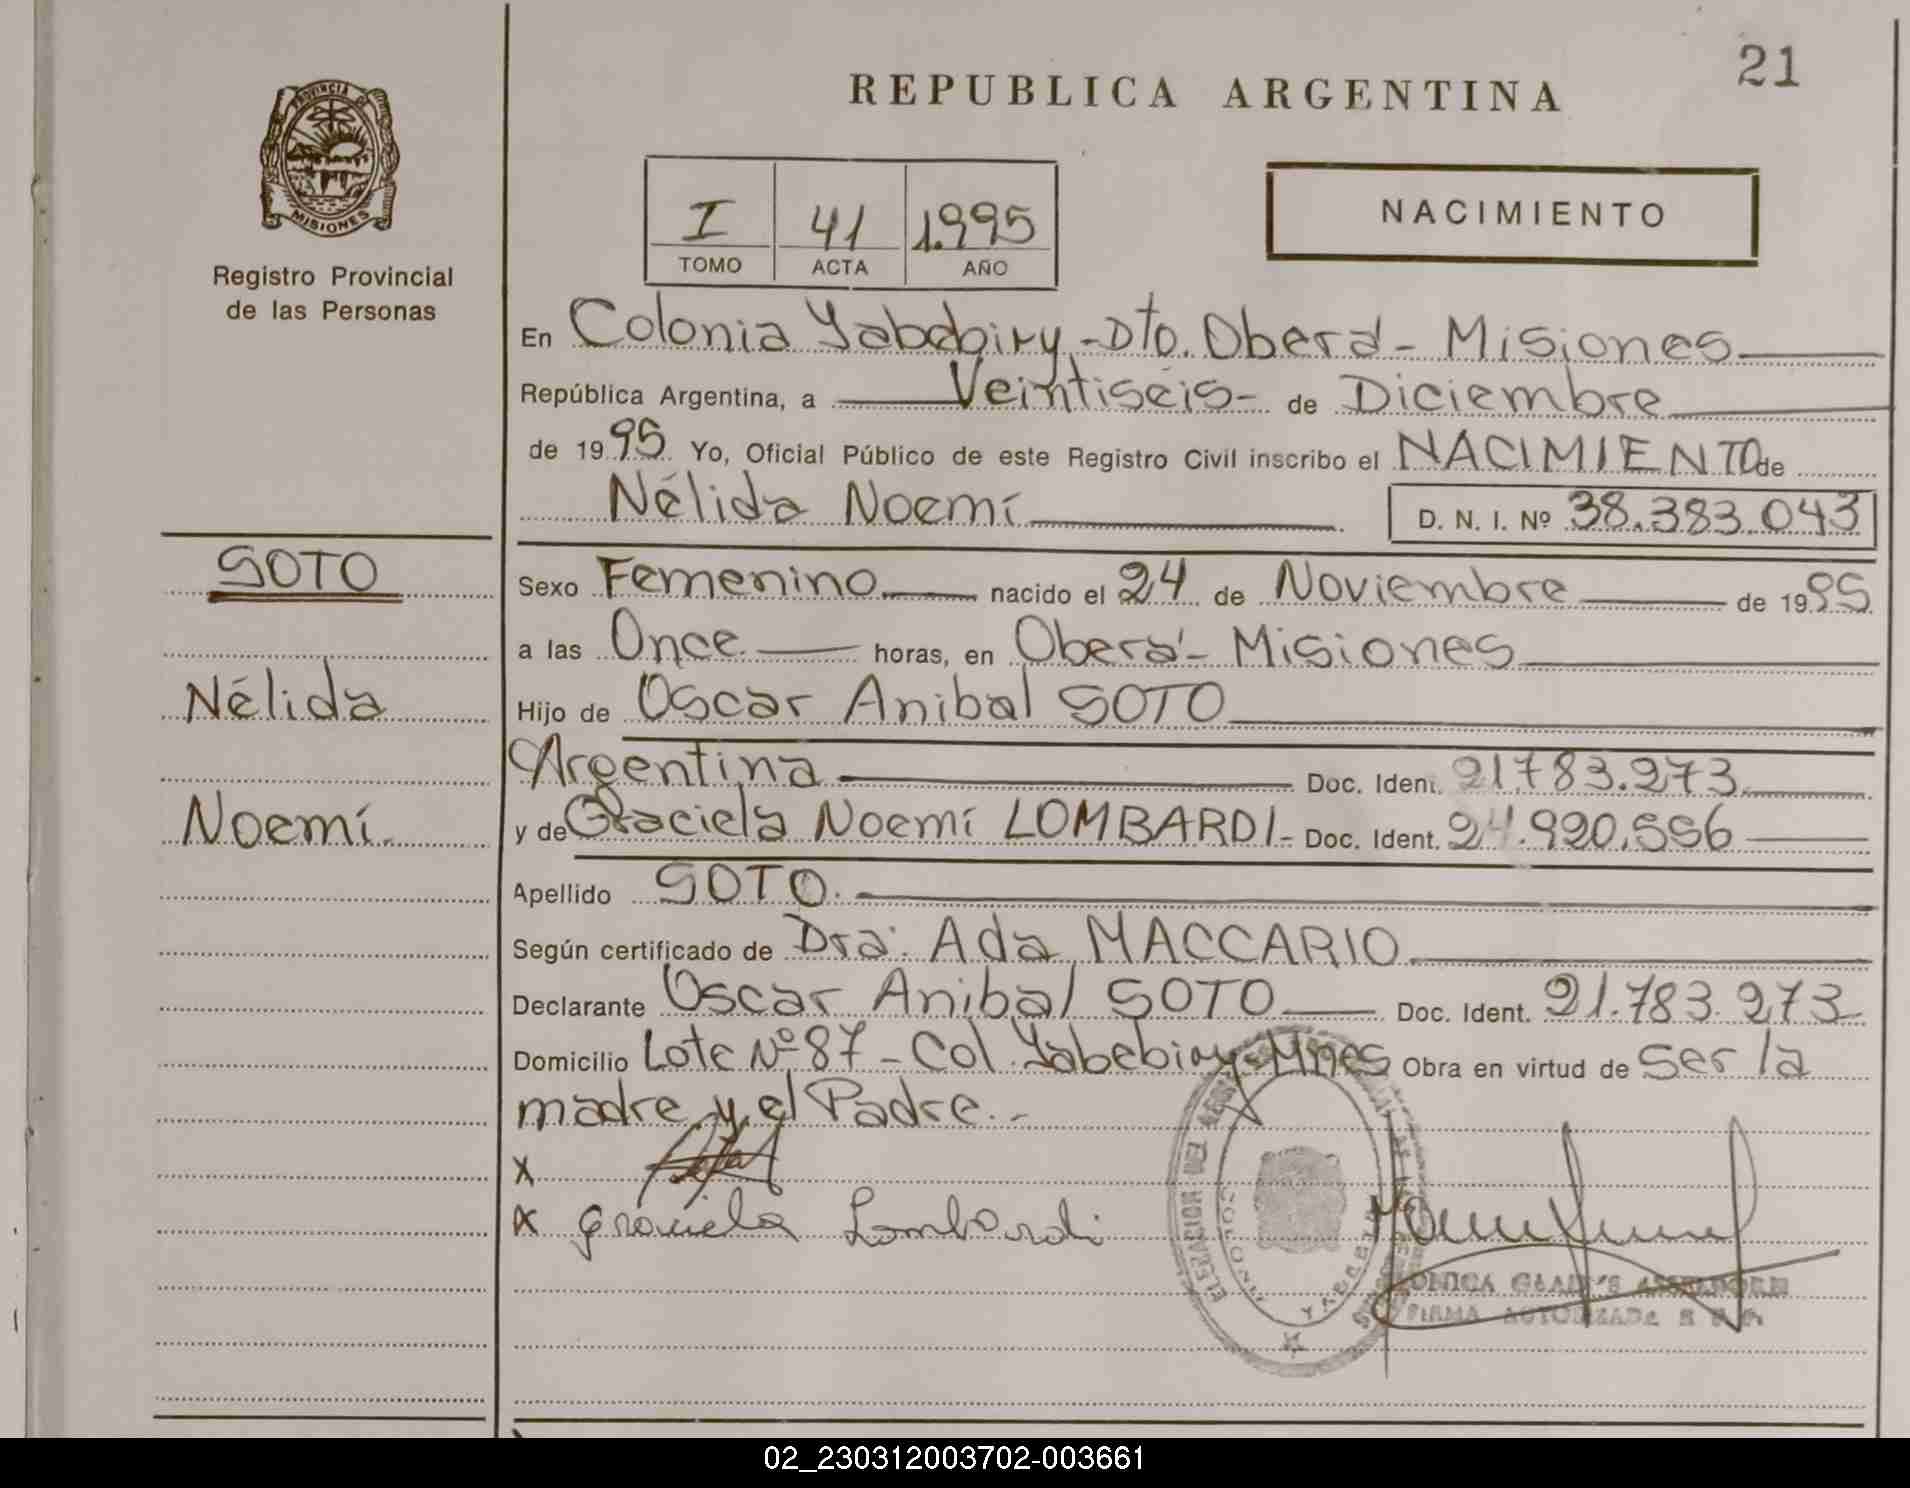 21
REPUBLICA ARGENTINA
PROVINCIA DE
MISIONES
Registro Provincial
de las Personas
I 41 1.995
TOMO ACTA AÑO
NACIMIENTO
En Colonia Yabebiry - Dto. Oberá - Misiones
República Argentina, a Veintiséis - de Diciembre
de 1995 Yo, Oficial Público de este Registro Civil inscribo el NACIMIENTO de
Nélida Noemí D. N. I. Nº 38.383.043
SOTO
Nélida
Noemí.
Sexo Femenino nacido el 24 de Noviembre de 1995
a las Once horas, en Oberá - Misiones
Hijo de Oscar Anibal SOTO
Argentina Doc. Ident. 21.783.273
y de Graciela Noemí LOMBARDI - Doc. Ident. 24.920.556
Apellido SOTO.
Según certificado de Dra. Ada MACCARIO
Declarante Oscar Anibal SOTO Doc. Ident. 21.783.273
Domicilio Lote Nº 87 - Col. Yabebiry - Mnes Obra en virtud de Ser la
madre y el Padre. -
X
X Graciela Lombardi
COLONIA YABEBIRY
GLADYS
FIRMA AUTORIZADA
02_230312003702-003661